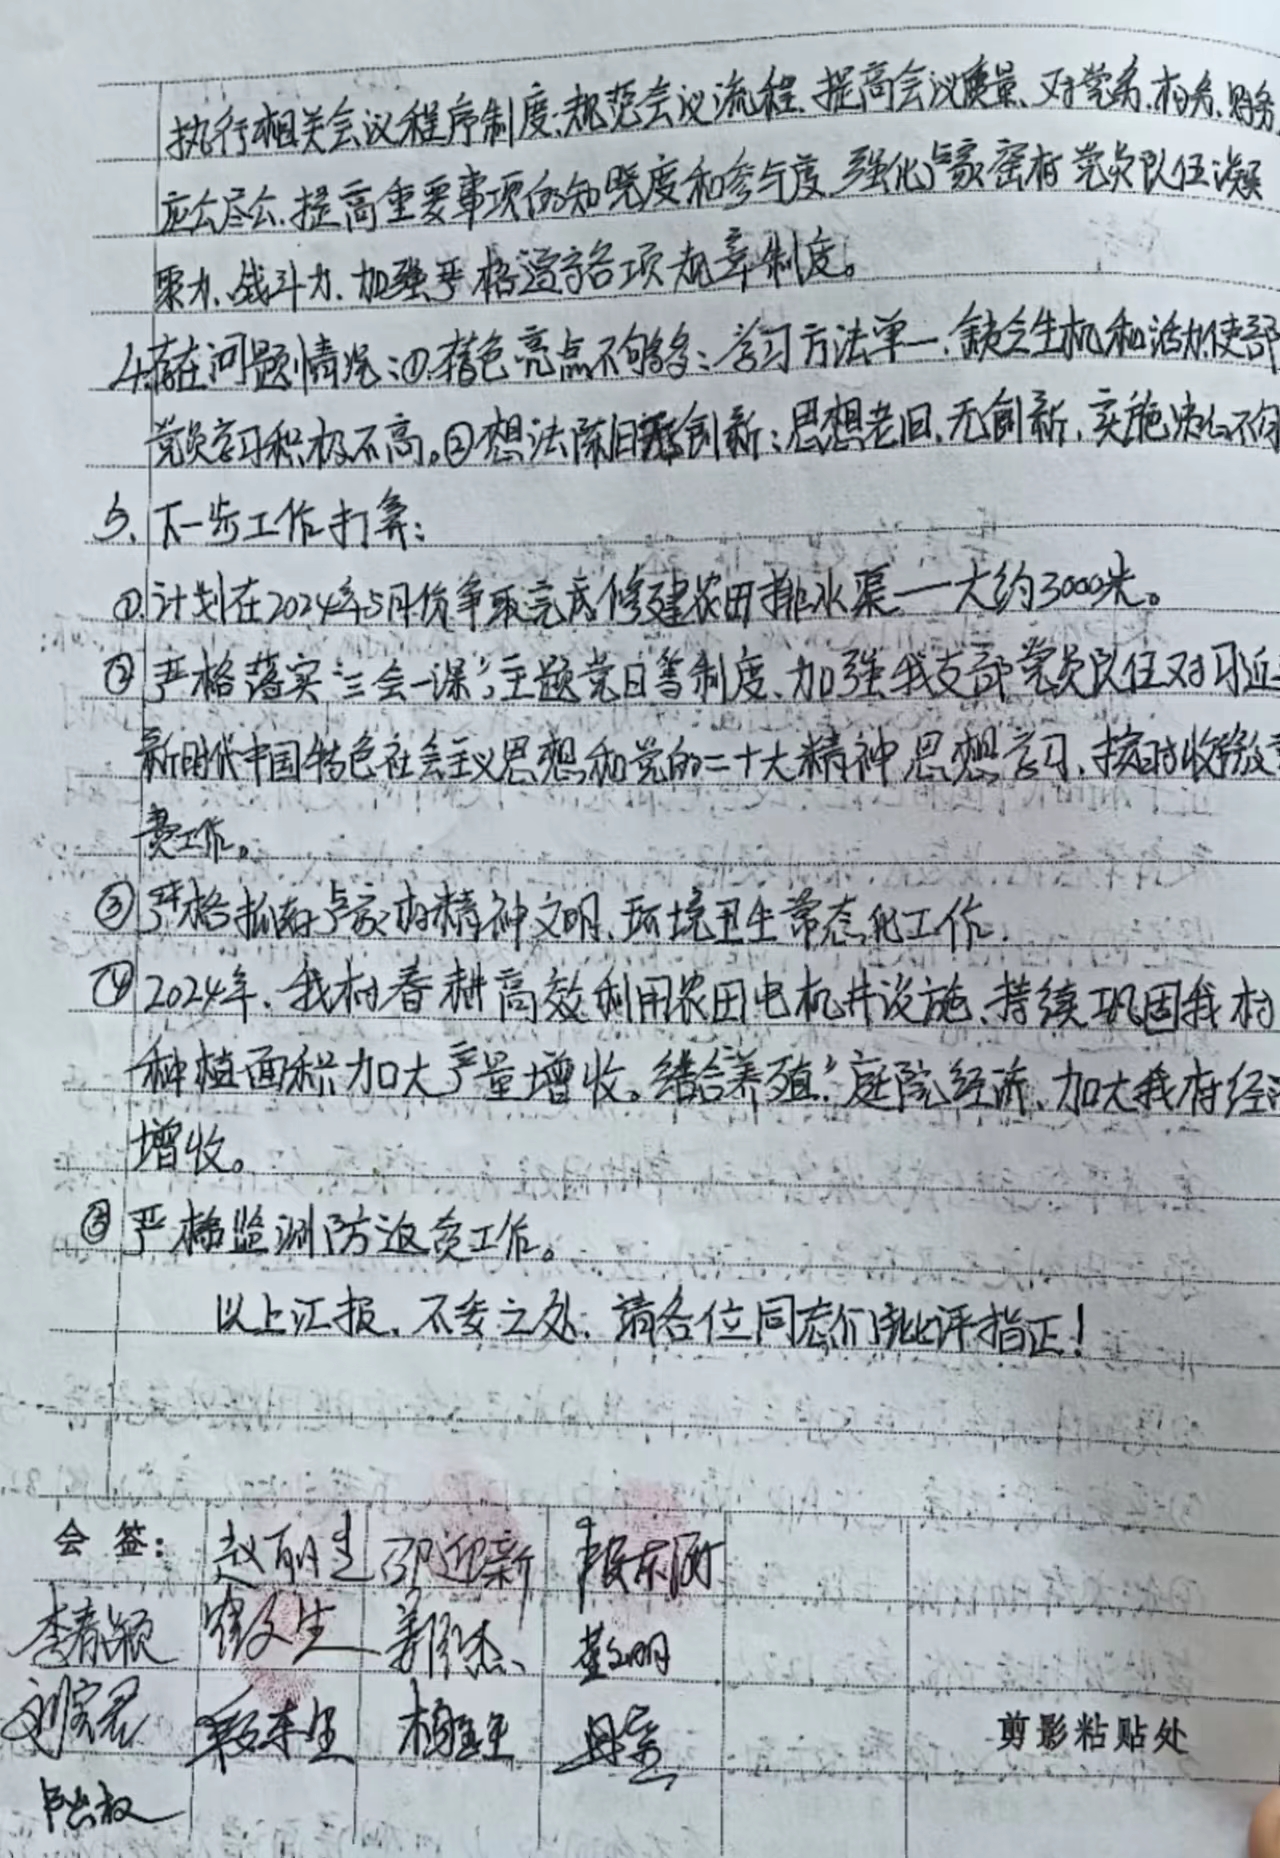 执行相关会议程序制度,规范会议流程、提高会议质量、对党务、村务、财务
应公尽公、提高重要事项的知晓度和参与度、强化卢家窑村党员队伍凝
聚力、战斗力、加强严格遵守各项规章制度。
4.存在问题情况:①.特色亮点不够多;学习方法单一、缺乏生机和活力使部
党员学习积极不高。②想法陈旧 创新;思想老旧、无创新、实施决心不
5、下一步工作打算:
①.计划在2024年5月份争取完成修建农田排水渠一大约3000米。
②严格落实“三会一课”,主题党日等制度、加强我支部党员队伍对习近
新时代中国特色社会主义思想和党的二十大精神思想学习、按时收缴党
费工作。
③严格抓好卢家村精神文明、环境卫生常态化工作.
④2024年、我村春耕高效利用农田电机井设施、持续巩固我村
种植面积加大产量增收。结合养殖,庭院经济、加大我村经济
增收。
⑤严格监测防返贫工作。
以上汇报、不妥之处、请各位同志们批评指正!
会 签: 赵丽 邵迎新 段东
李春颖 生 董文明
刘 生 杨
剪影粘贴处